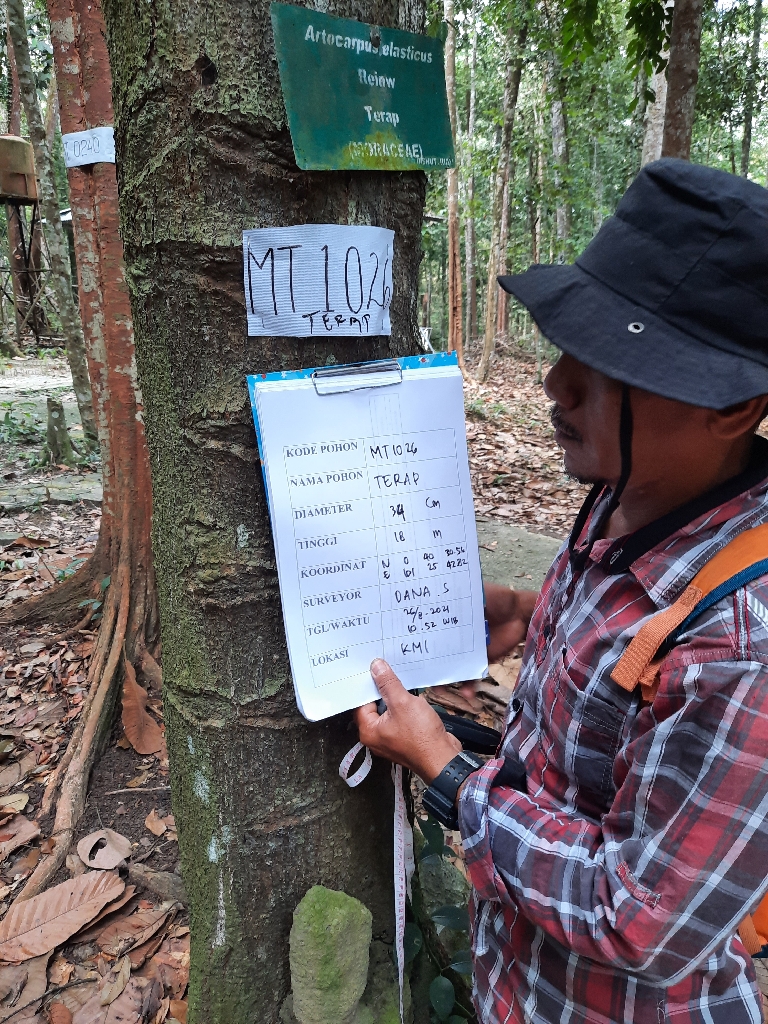 Artocarpus elasticus
Rejow
Terap
(MORACEAE)
0240
MT 1026
TERAP
KODE POHON MT1026
NAMA POHON TERAP
DIAMETER 34 Cm
TINGGI 18 m
KOORDINAT N 0 40 30.56
E 101 25 42.82
SURVEYOR DANA.S
TGL/WAKTU 26/8-2021
10.52 WIB
LOKASI KMI